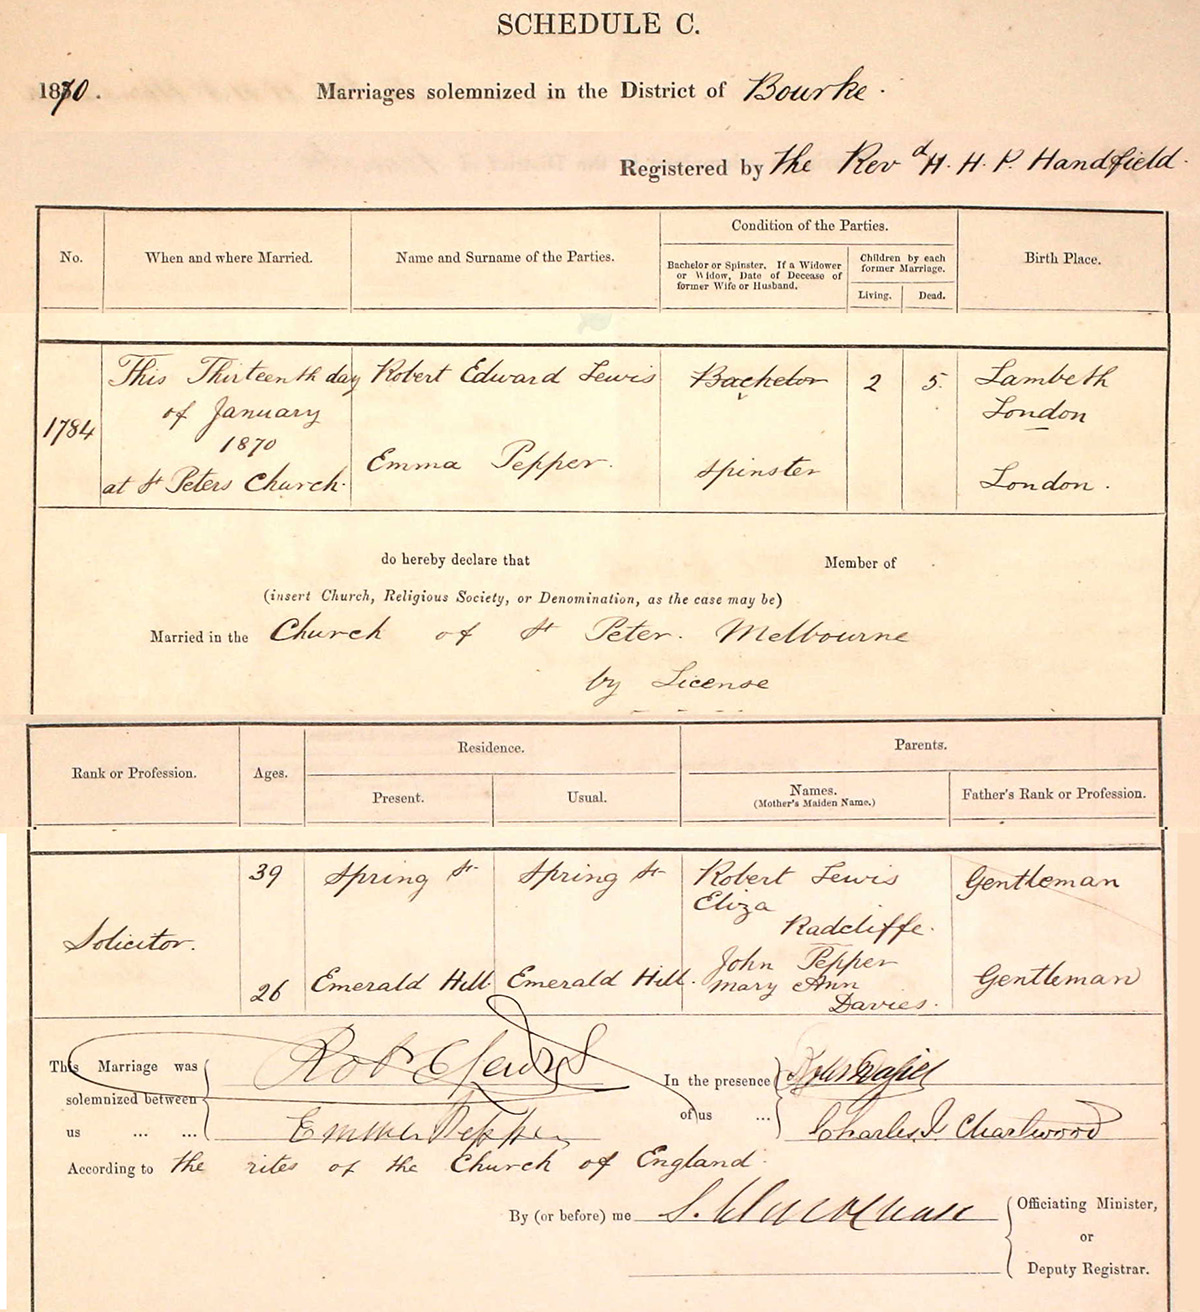 SCHEDULE C.
1870. Marriages solemnized in the District of Bourke.
Registered by the Revd H. H. P. Handfield.
Condition of the Parties.
No. When and where Married. Name and Surname of the Parties. Bachelor or Spinster. If a Widower or Widow, Date of Decease of former Wife or Husband. Children by each former Marriage. Birth Place.
Living. Dead.
This Thirteenth day Robert Edward Lewis Bachelor 2 5. Lambeth
of January London
1784 1870
Emma Pepper. Spinster London.
at St Peters Church.
do hereby declare that Member of
(insert Church, Religious Society, or Denomination, as the case may be)
Married in the Church of St Peter. Melbourne
by License
Residence. Parents.
Rank or Profession. Ages. Present. Usual. Names. (Mother's Maiden Name.) Father's Rank or Profession.
39 Spring St Spring St Robert Lewis Gentleman
Eliza
Radcliffe.
Solicitor.
John Pepper
26 Emerald Hill Emerald Hill. Mary Ann Gentleman
Davies.
This Marriage was Robt E Lewis In the presence
solemnized between of us ...
us ... ... Emma Pepper Charles J. Chartwood
According to the rites of the Church of England.
By (or before) me Officiating Minister,
or
Deputy Registrar.